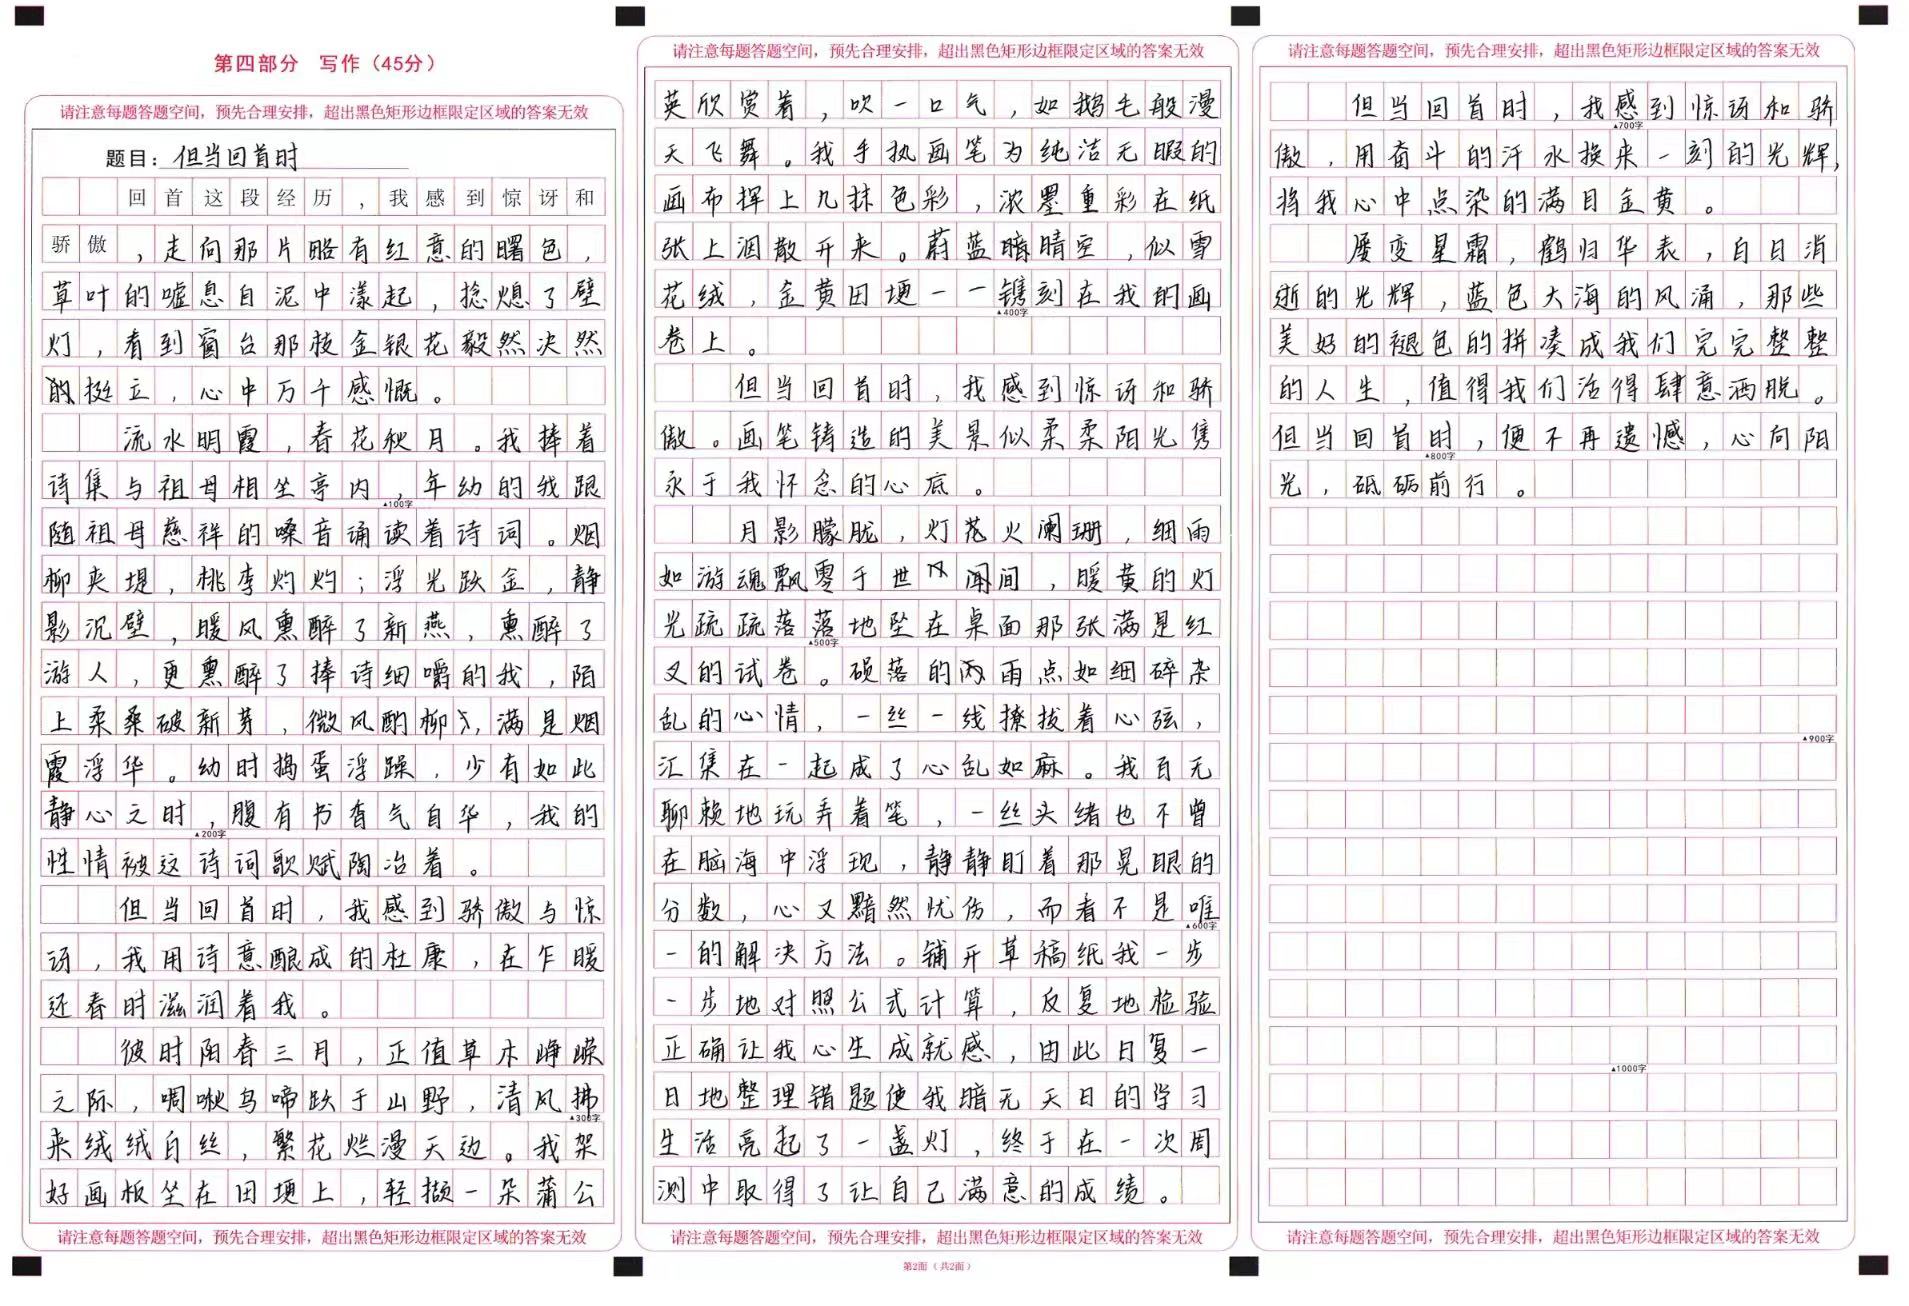 第四部分 写作（45分）
请注意每题答题空间，预先合理安排，超出黑色矩形边框限定区域的答案无效
题目：但当回首时
回首这段经历，我感到惊讶和
骄傲，走向那片略有红意的曙色，
草叶的嘘息自泥中漾起，捻熄了壁
灯，看到窗台那枝金银花毅然决然
的挺立，心中万千感慨。
流水明霞，春花秋月。我捧着
诗集与祖母相坐亭内，年幼的我跟
▲100字
随祖母慈祥的嗓音诵读着诗词。烟
柳夹堤，桃李灼灼；浮光跃金，静
影沉璧，暖风熏醉了新燕，熏醉了
游人，更熏醉了捧诗细嚼的我，陌
上柔桑破新芽，微风酌柳，满是烟
霞浮华。幼时捣蛋浮躁，少有如此
静心之时，腹有书香气自华，我的
▲200字
性情被这诗词歌赋陶冶着。
但当回首时，我感到骄傲与惊
讶，我用诗意酿成的杜康，在乍暖
还春时滋润着我。
彼时阳春三月，正值草木峥嵘
之际，啁啾鸟啼跃于山野，清风拂
▲300字
来绒绒白丝，繁花烂漫天边。我架
好画板坐在田埂上，轻撷一朵蒲公
请注意每题答题空间，预先合理安排，超出黑色矩形边框限定区域的答案无效
请注意每题答题空间，预先合理安排，超出黑色矩形边框限定区域的答案无效
英欣赏着，吹一口气，如鹅毛般漫
天飞舞。我手执画笔为纯洁无暇的
画布挥上几抹色彩，浓墨重彩在纸
张上洇散开来。蔚蓝晴空，似雪
花绒，金黄田埂一一镌刻在我的画
▲400字
卷上。
但当回首时，我感到惊讶和骄
傲。画笔铸造的美景似柔柔阳光隽
永于我怀念的心底。
月影朦胧，灯火阑珊，细雨
如游魂飘零于世间，暖黄的灯
光疏疏落落地坠在桌面那张满是红
▲500字
叉的试卷。硕落的雨点如细碎杂
乱的心情，一丝一线撩拨着心弦，
汇集在一起成了心乱如麻。我百无
聊赖地玩弄着笔，一丝头绪也不曾
在脑海中浮现，静静盯着那晃眼的
分数，心又黯然忧伤，而看不是唯
▲600字
一的解决方法。铺开草稿纸我一步
一步地对照公式计算，反复地检验
正确让我心生成就感，由此日复一
日地整理错题使我暗无天日的学习
生活亮起了一盏灯，终于在一次周
测中取得了让自己满意的成绩。
请注意每题答题空间，预先合理安排，超出黑色矩形边框限定区域的答案无效
第2面（共2面）
请注意每题答题空间，预先合理安排，超出黑色矩形边框限定区域的答案无效
但当回首时，我感到惊讶和骄
▲700字
傲，用奋斗的汗水换来一刻的光辉，
将我心中点染的满目金黄。
屡变星霜，鹤归华表，白日消
逝的光辉，蓝色大海的风涌，那些
美好的褪色的拼凑成我们完完整整
的人生，值得我们活得肆意洒脱。
但当回首时，便不再遗憾，心向阳
▲800字
光，砥砺前行。
▲900字
▲1000字
请注意每题答题空间，预先合理安排，超出黑色矩形边框限定区域的答案无效